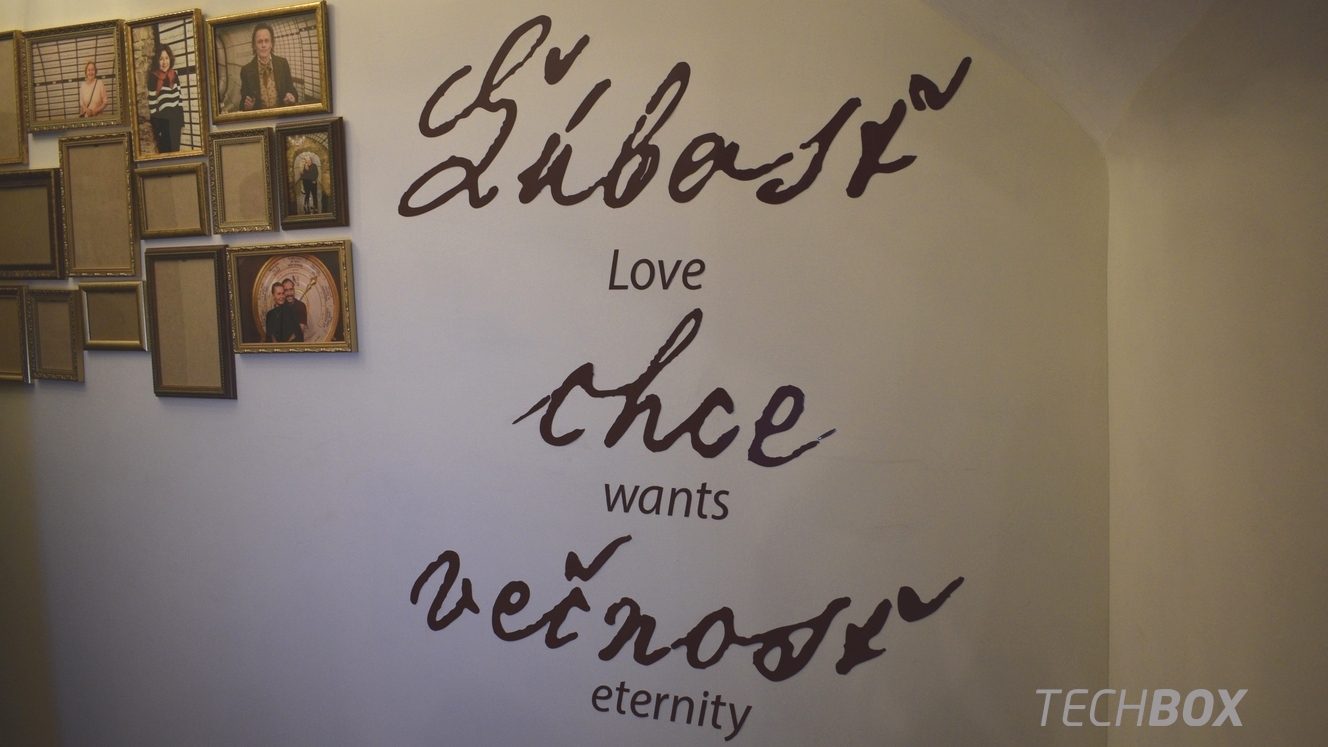 Ľúbosť
Love
chce
wants
večnosť
eternity
TECHBOX